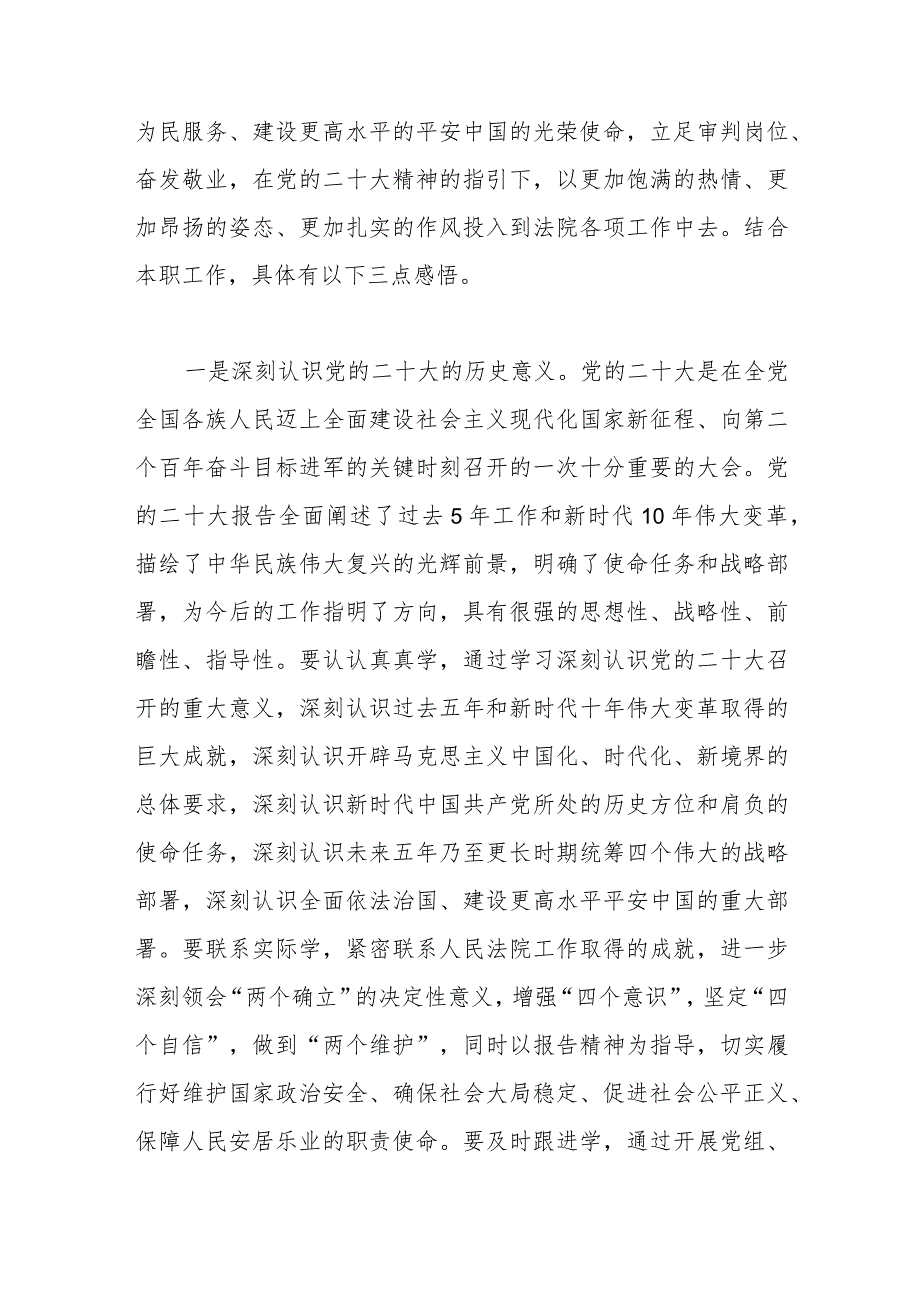 为民服务、建设更高水平的平安中国的光荣使命，立足审判岗位、
奋发敬业，在党的二十大精神的指引下，以更加饱满的热情、更
加昂扬的姿态、更加扎实的作风投入到法院各项工作中去。结合
本职工作，具体有以下三点感悟。
一是深刻认识党的二十大的历史意义。党的二十大是在全党
全国各族人民迈上全面建设社会主义现代化国家新征程、向第二
个百年奋斗目标进军的关键时刻召开的一次十分重要的大会。党
的二十大报告全面阐述了过去5年工作和新时代10年伟大变革，
描绘了中华民族伟大复兴的光辉前景，明确了使命任务和战略部
署，为今后的工作指明了方向，具有很强的思想性、战略性、前
瞻性、指导性。要认认真真学，通过学习深刻认识党的二十大召
开的重大意义，深刻认识过去五年和新时代十年伟大变革取得的
巨大成就，深刻认识开辟马克思主义中国化、时代化、新境界的
总体要求，深刻认识新时代中国共产党所处的历史方位和肩负的
使命任务，深刻认识未来五年乃至更长时期统筹四个伟大的战略
部署，深刻认识全面依法治国、建设更高水平平安中国的重大部
署。要联系实际学，紧密联系人民法院工作取得的成就，进一步
深刻领会“两个确立”的决定性意义，增强“四个意识”，坚定“四
个自信”，做到“两个维护”，同时以报告精神为指导，切实履
行好维护国家政治安全、确保社会大局稳定、促进社会公平正义、
保障人民安居乐业的职责使命。要及时跟进学，通过开展党组、